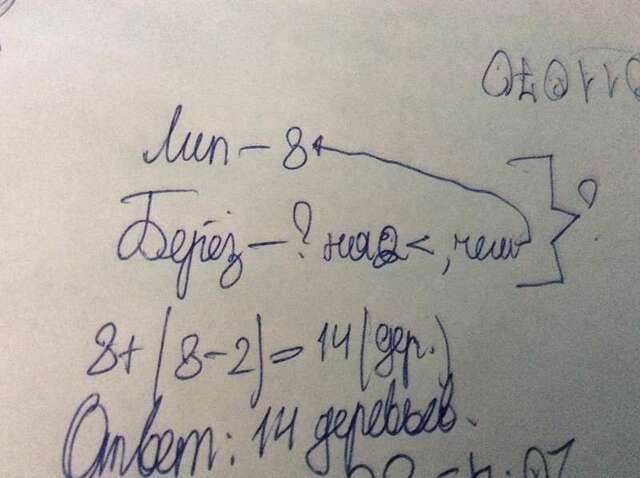 Лип – 8
Берёз – ? на 2 <, чем
?
8 + (8 – 2) = 14 (дер.)
Ответ: 14 деревьев.